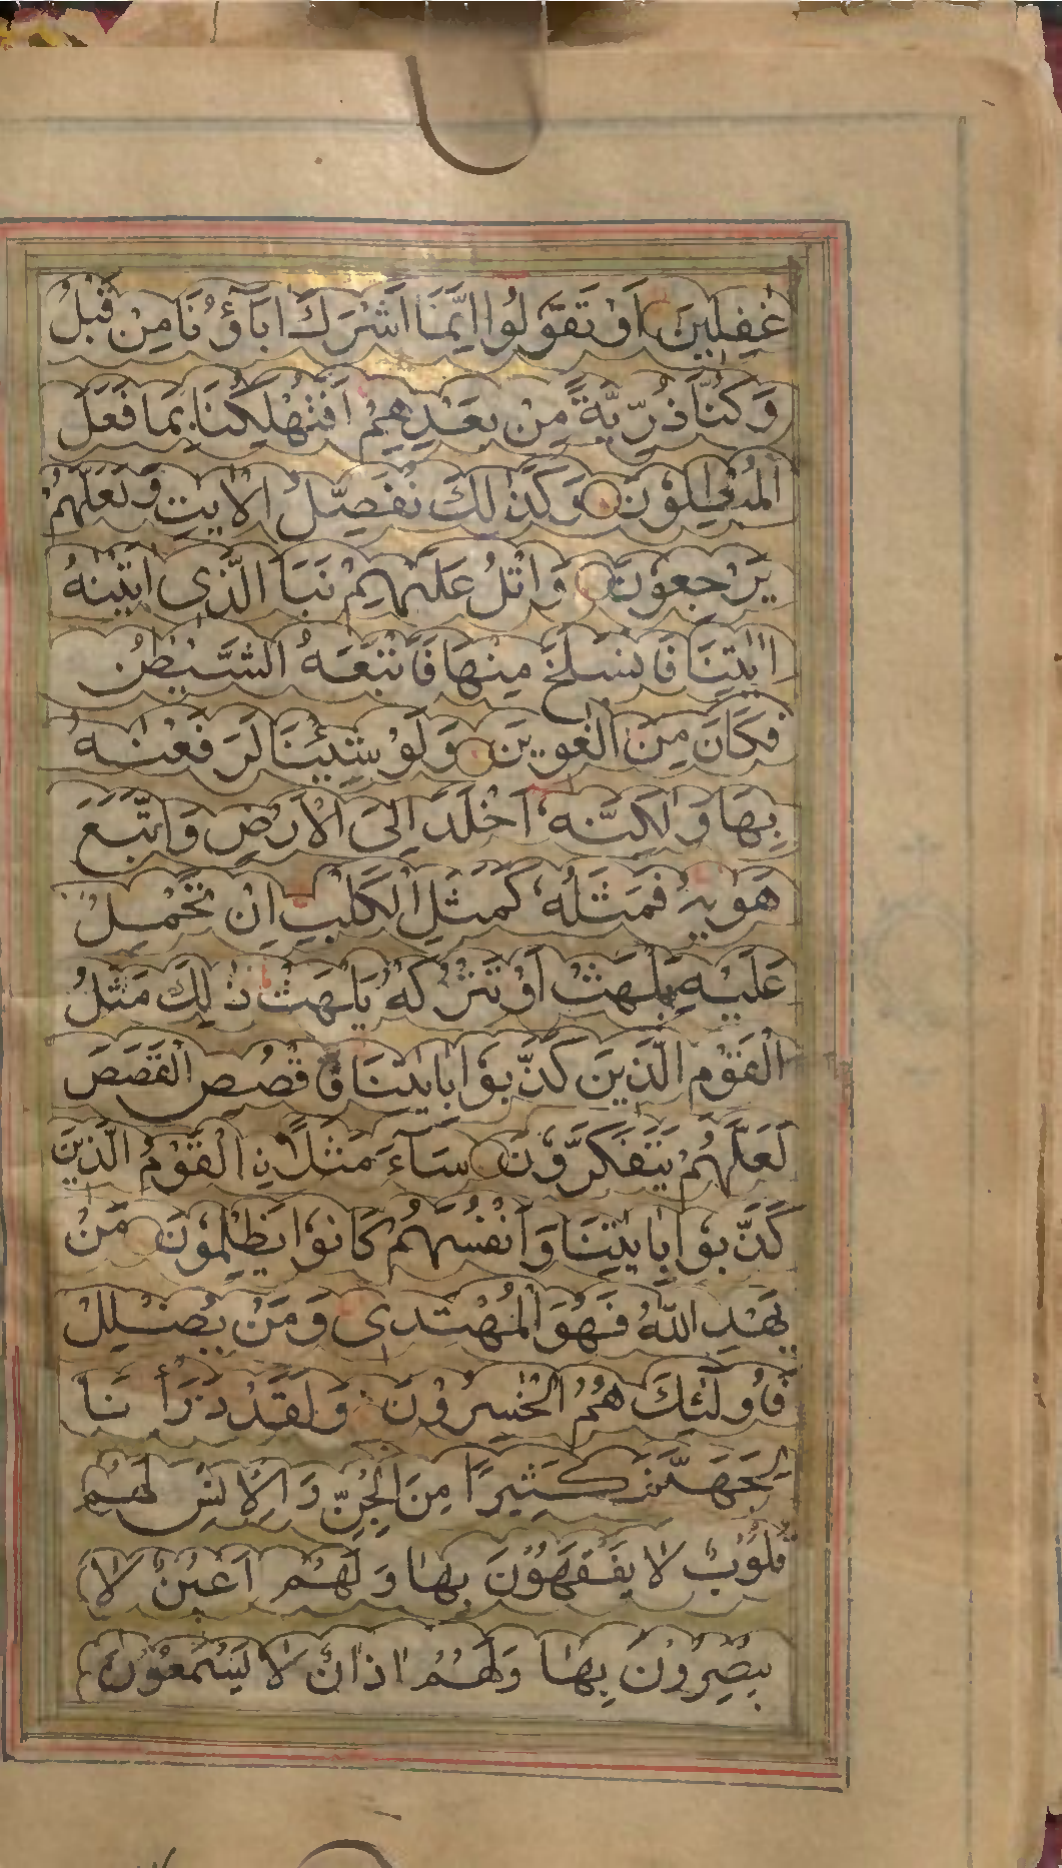 غٰفِلِيْنَ اَوْ تَقُوْلُوْا اِنَّمَا اَشْرَكَ اٰبَآؤُنَا مِنْ قَبْلُ
وَكُنَّا ذُرِّيَّةً مِنْ بَعْدِهِمْ اَفَتُهْلِكُنَا بِمَا فَعَلَ
الْمُبْطِلُوْنَ وَكَذٰلِكَ نُفَصِّلُ الْاٰيٰتِ وَلَعَلَّهُمْ
يَرْجِعُوْنَ وَاتْلُ عَلَيْهِمْ نَبَاَ الَّذِى اٰتَيْنٰهُ
اٰيٰتِنَا فَانْسَلَخَ مِنْهَا فَاَتْبَعَهُ الشَّيْطٰنُ
فَكَانَ مِنَ الْغٰوِيْنَ وَلَوْ شِئْنَا لَرَفَعْنٰهُ
بِهَا وَلٰكِنَّهٗ اَخْلَدَ اِلَى الْاَرْضِ وَاتَّبَعَ
هَوٰيهُ فَمَثَلُهٗ كَمَثَلِ الْكَلْبِ اِنْ تَحْمِلْ
عَلَيْهِ يَلْهَثْ اَوْ تَتْرُكْهُ يَلْهَثْ ذٰلِكَ مَثَلُ
الْقَوْمِ الَّذِيْنَ كَذَّبُوْا بِاٰيٰتِنَا فَاقْصُصِ الْقَصَصَ
لَعَلَّهُمْ يَتَفَكَّرُوْنَ سَآءَ مَثَلًا نِ الْقَوْمُ الَّذِيْنَ
كَذَّبُوْا بِاٰيٰتِنَا وَاَنْفُسَهُمْ كَانُوْا يَظْلِمُوْنَ مَنْ
يَهْدِ اللّٰهُ فَهُوَ الْمُهْتَدِى وَمَنْ يُضْلِلْ
فَاُولٰئِكَ هُمُ الْخٰسِرُوْنَ وَلَقَدْ ذَرَأْنَا
لِجَهَنَّمَ كَثِيْرًا مِنَ الْجِنِّ وَالْاِنْسِ لَهُمْ
قُلُوْبٌ لَا يَفْقَهُوْنَ بِهَا وَلَهُمْ اَعْيُنٌ لَا
يُبْصِرُوْنَ بِهَا وَلَهُمْ اٰذَانٌ لَا يَسْمَعُوْنَ